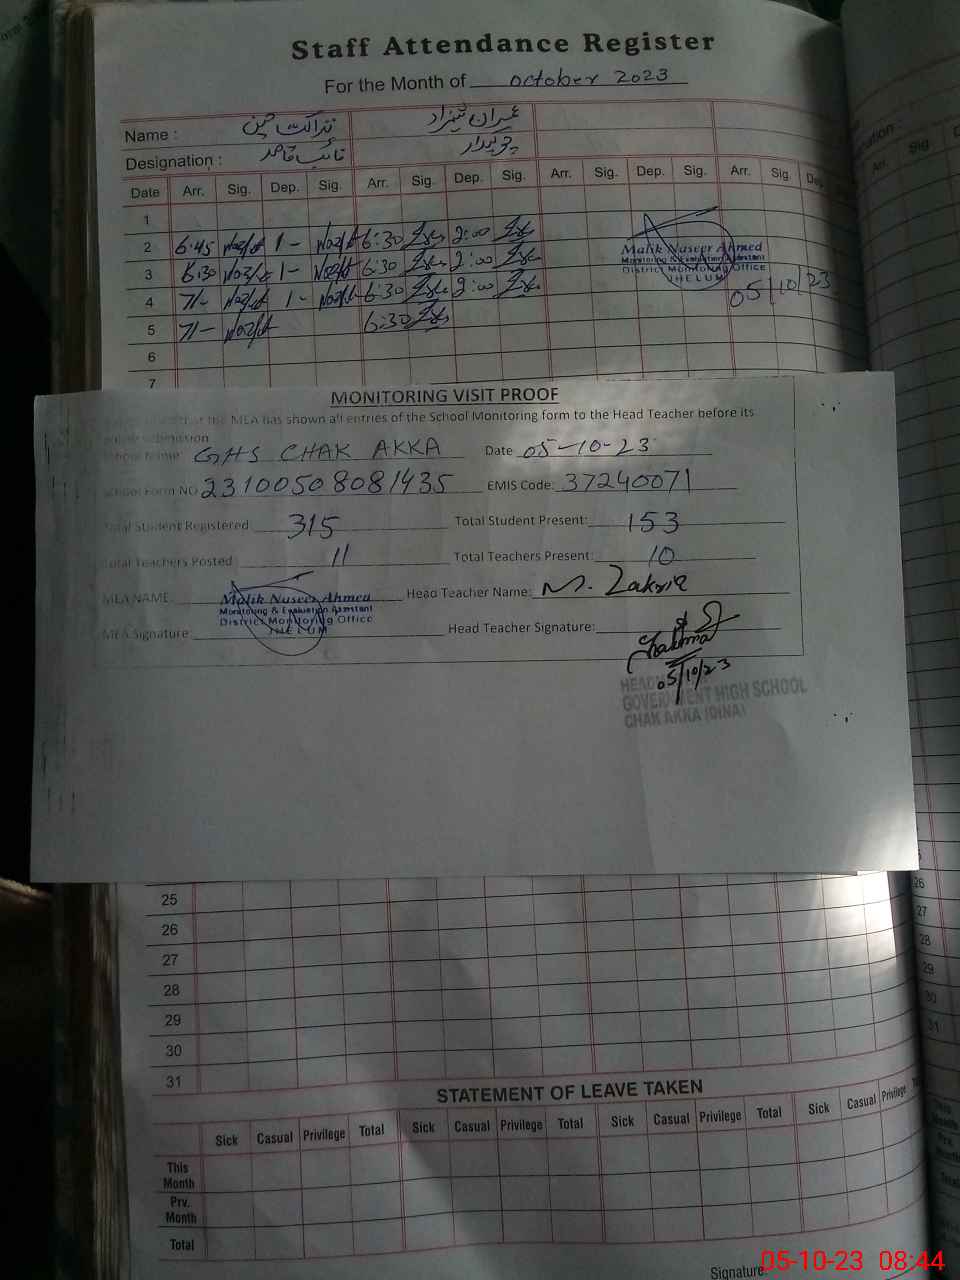 Staff Attendance Register
For the Month of October 2023
Name : نزاکت حسین عمران شہزاد
Designation : نائب قاصد چوکیدار
Date Arr. Sig. Dep. Sig. Arr. Sig. Dep. Sig. Arr. Sig. Dep. Sig. Arr. Sig. Dep.
1
2 6:45 1- 6:30 2:00
3 6:30 1- 6:30 2:00
4 7/- 1- 6:30 2:00
5 7/- 6:30
6
7
Malik Naseer Ahmed
Monitoring & Evaluation Assistant
District Monitoring Office
JHELUM
05/10/23
Arr. Sig
MONITORING VISIT PROOF
that the MEA has shown all entries of the School Monitoring form to the Head Teacher before its
submission
School Name GHS CHAK AKKA Date 05-10-23
School Form NO 23100508081435 EMIS Code: 37240071
Total Student Registered 315 Total Student Present: 153
Total Teachers Posted 11 Total Teachers Present: 10
MEA NAME: Head Teacher Name: M. Zakria
Malik Naseer Ahmed
Monitoring & Evaluation Assistant
District Monitoring Office
JHELUM
MEA Signature Head Teacher Signature:
05/10/23
GOVERNMENT HIGH SCHOOL
CHAK AKKA (DINA)
25
26
27
28
29
30
31
26
27
28
29
30
31
STATEMENT OF LEAVE TAKEN
Sick Casual Privilege Total Sick Casual Privilege Total Sick Casual Privilege Total Sick Casual Privilege
This
Month
Prv.
Month
Total
Signature:
05-10-23 08:44